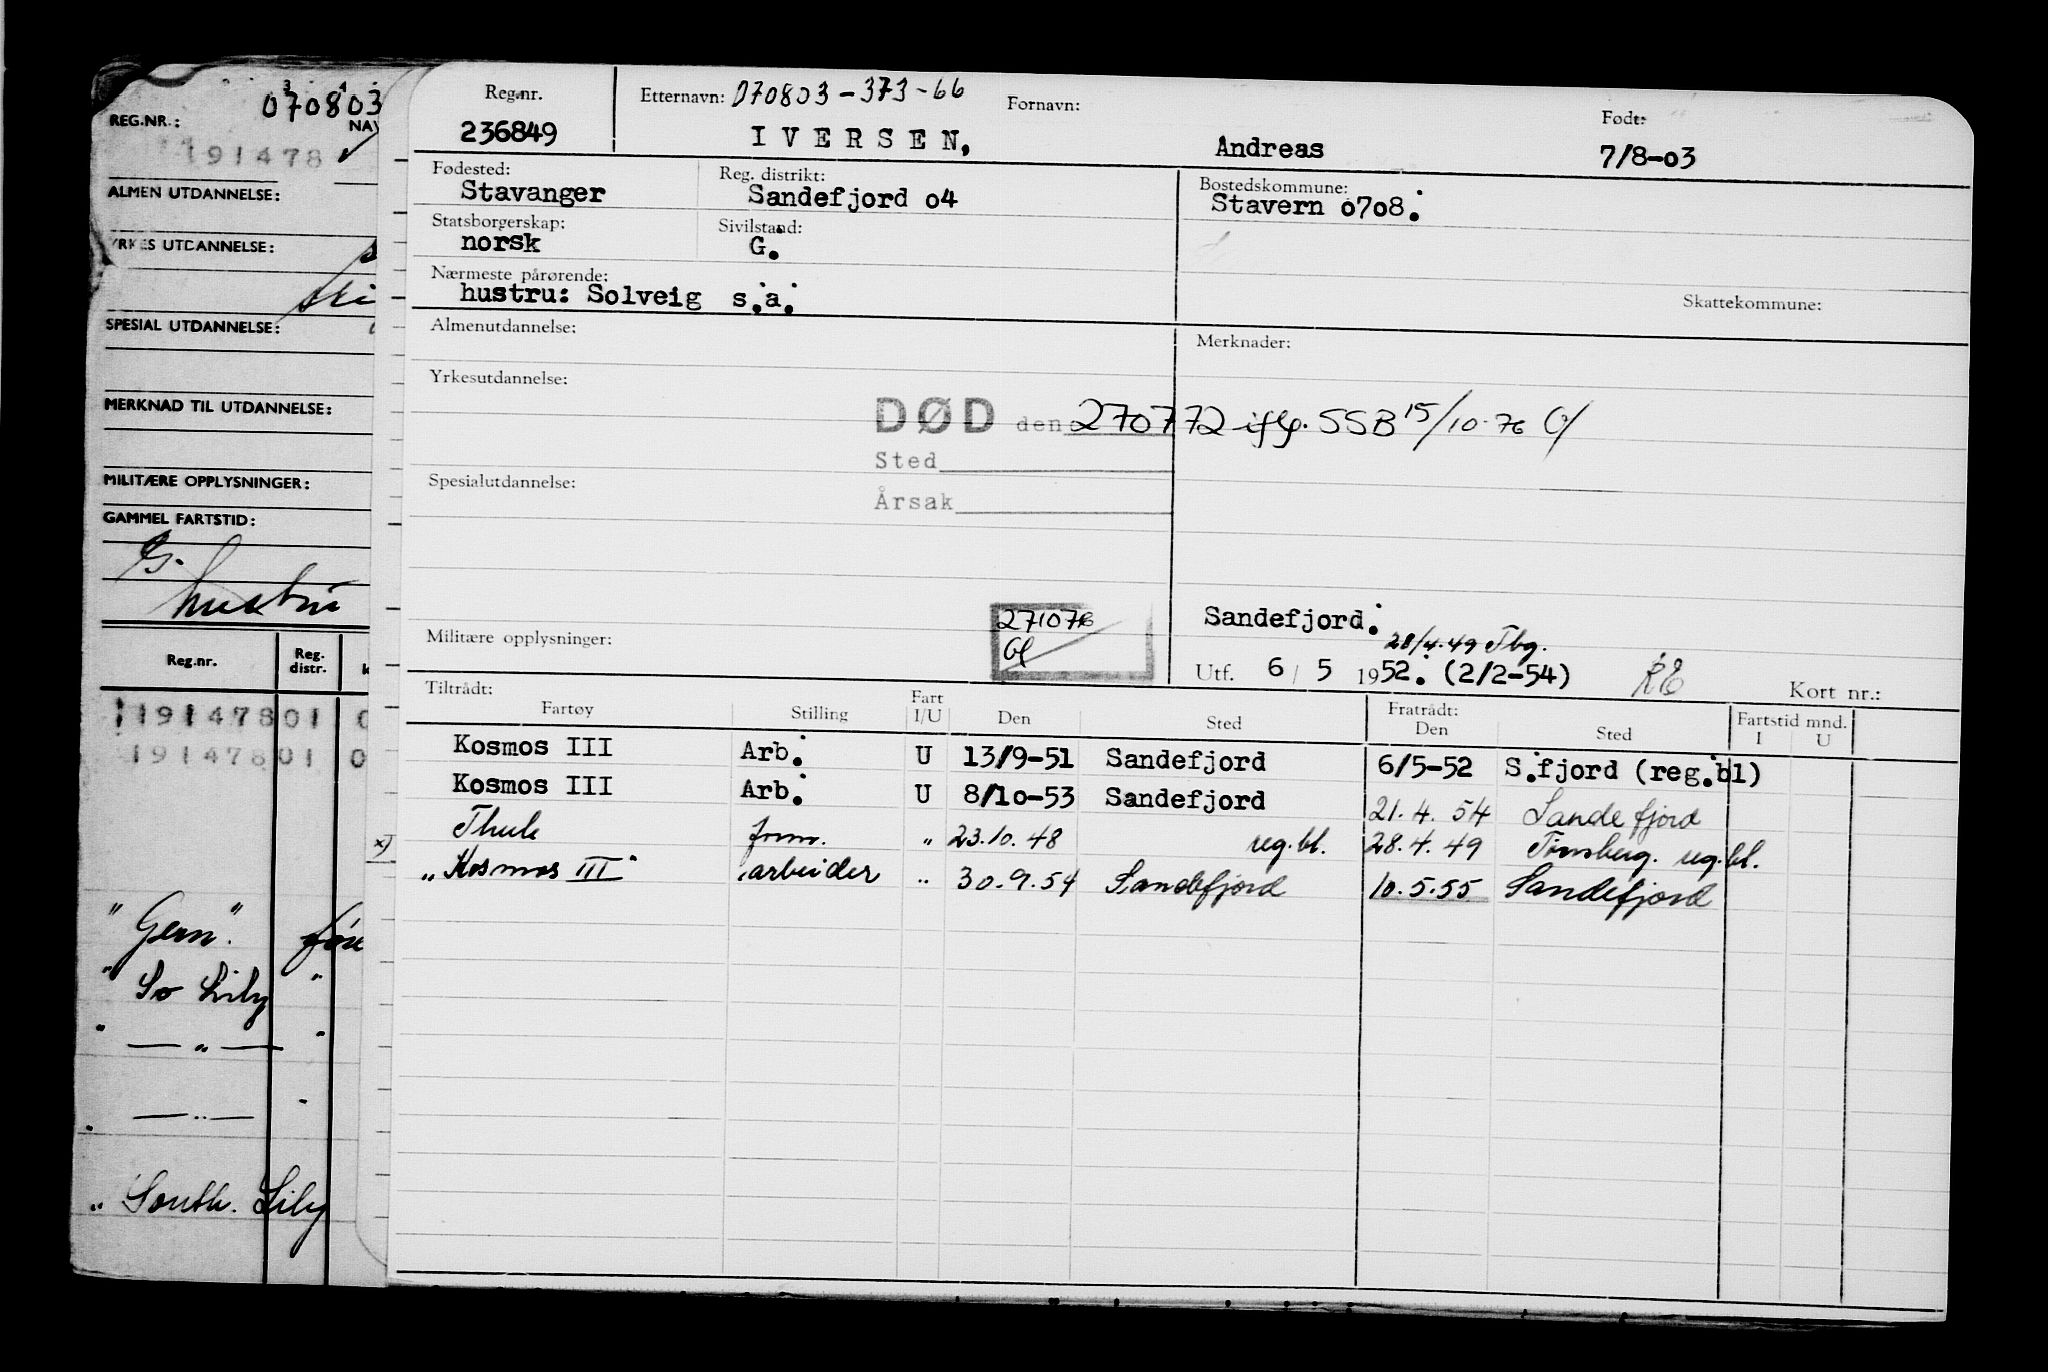 070803
REG.NR.:
NAV
191478
ALMEN UTDANNELSE:
YRKES UTDANNELSE:
SPESIAL UTDANNELSE:
MERKNAD TIL UTDANNELSE:
MILITÆRE OPPLYSNINGER:
GAMMEL FARTSTID:
G.
hustru
Reg.nr. Reg. distr.
191478 01 0
191478 01 0
"Gern".
" So Lily "
" — " — "
— " —
" South. Lily
Reg.nr. Etternavn: 070803-373-66 Fornavn: Født:
236849 IVERSEN, Andreas 7/8-o3
Fødested: Reg. distrikt: Bostedskommune:
Stavanger Sandefjord o4 Stavern o7o8.
Statsborgerskap: Sivilstand:
norsk G.
Nærmeste pårørende:
hustru: Solveig s.a. Skattekommune:
Almenutdannelse: Merknader:
Yrkesutdannelse:
DØD den 270772 iflg. SSB 15/10-76
Sted
Spesialutdannelse:
Årsak
271076
Sandefjord.
Militære opplysninger: 28/4.49 Tbg.
Utf. 6 / 5 1952. (2/2-54) Kort nr.:
Tiltrådt: Fratrådt: Fartstid mnd.
Fartøy Stilling Fart I/U Den Sted Den Sted I U
Kosmos III Arb. U 13/9-51 Sandefjord 6/5-52 S.fjord (reg.bl)
Kosmos III Arb. U 8/1o-53 Sandefjord 21.4.54 Sandefjord
x) Thule " 23.10.48 reg.bl. 28.4.49 Tønsberg. reg.bl.
"Kosmos III" arbeider " 30.9.54 Sandefjord 10.5.55 Sandefjord